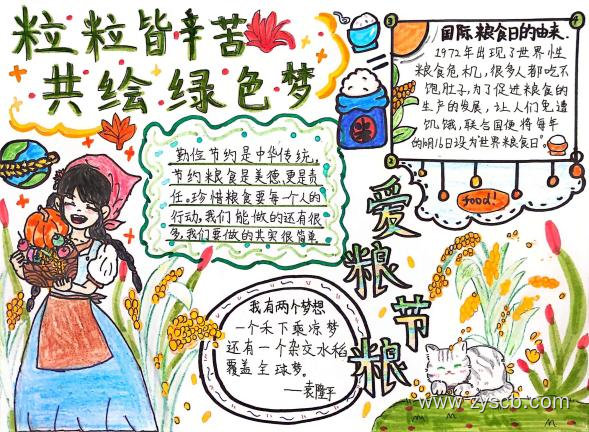 粒粒皆辛苦
共绘绿色梦
国际粮食日的由来.
1972年出现了世界性
粮食危机，很多人都吃不
饱肚子，为了促进粮食的
生产的发展，让人们免遭
饥饿，联合国便将每年
的10月16日设为世界粮食日。
food!
勤俭节约是中华传统，
节约粮食是美德，更是责
任。珍惜粮食要每个人的
行动，我们能做的还有很
多，我们要做的其实很简单
爱粮节粮
米
我有两个梦想
一个禾下乘凉梦
还有一个杂交水稻
覆盖全球梦。
——袁隆平
www.zyscb.com